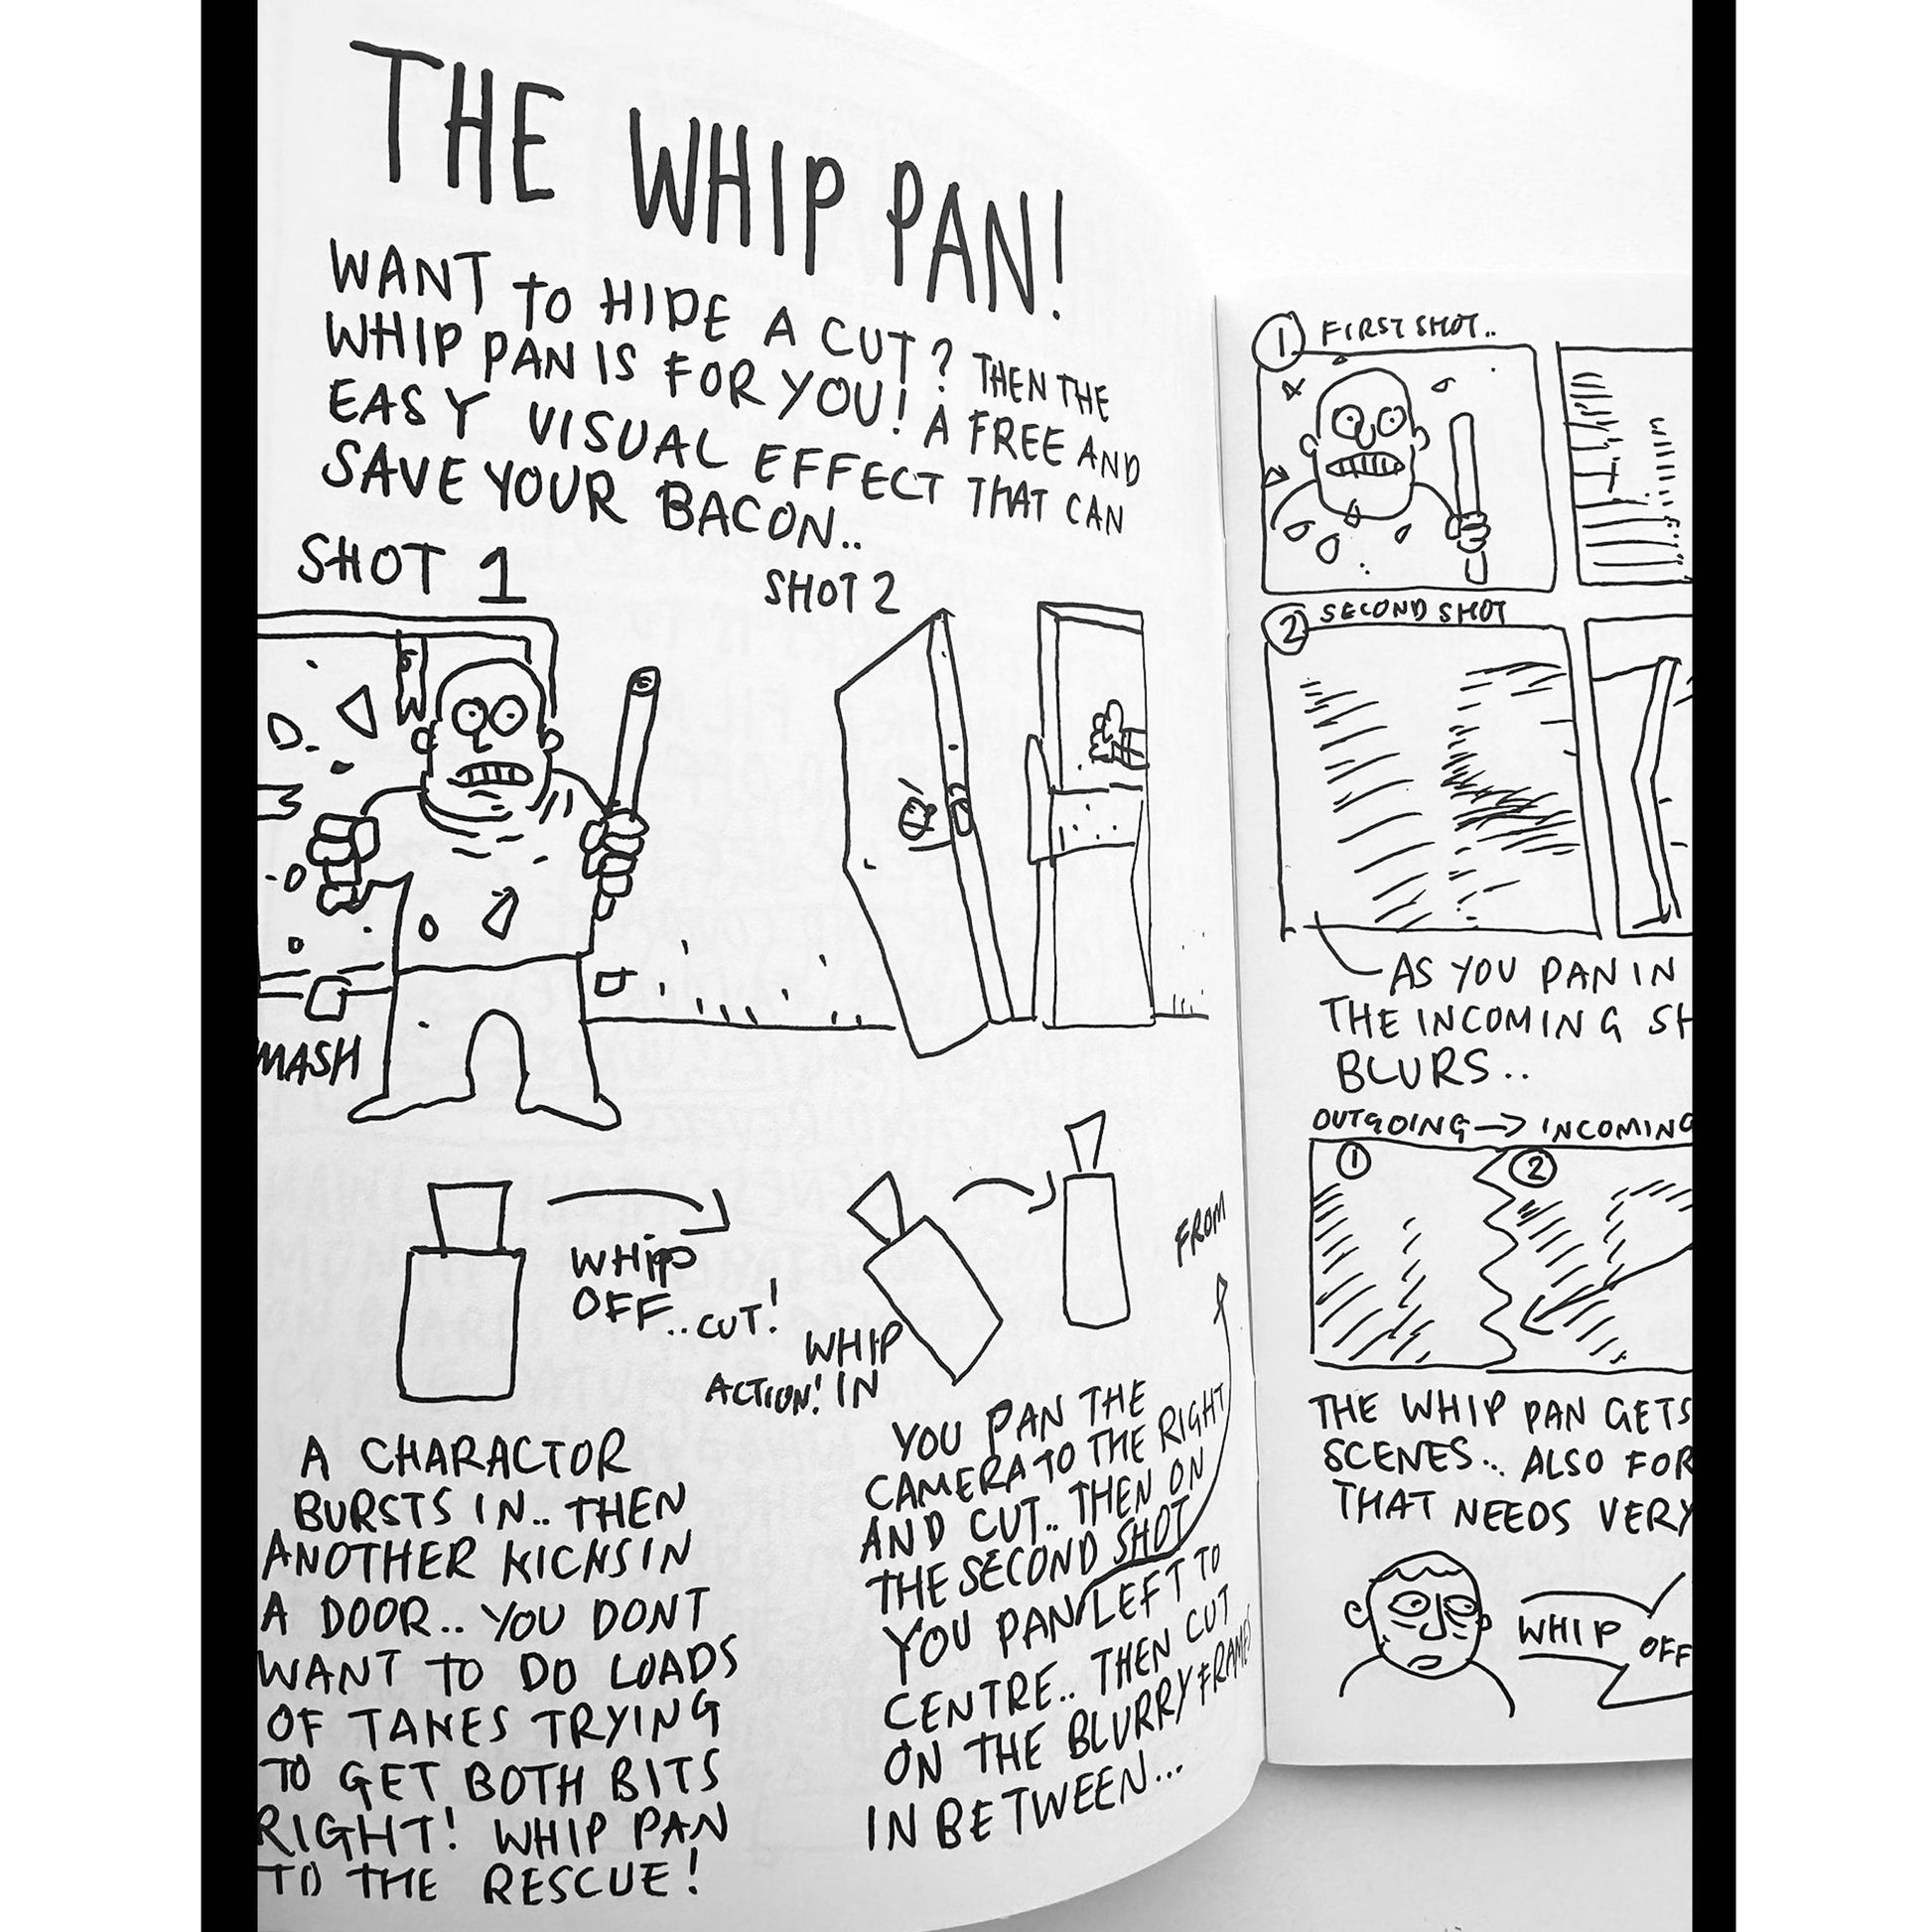 THE WHIP PAN!
WANT TO HIDE A CUT? THEN THE
WHIP PAN IS FOR YOU! A FREE AND
EASY VISUAL EFFECT THAT CAN
SAVE YOUR BACON..
SHOT 1
SHOT 2
MASH
WHIP
OFF.. CUT!
WHIP
ACTION! IN
A CHARACTOR
BURSTS IN.. THEN
ANOTHER KICKS IN
A DOOR.. YOU DONT
WANT TO DO LOADS
OF TAKES TRYING
TO GET BOTH BITS
RIGHT! WHIP PAN
TO THE RESCUE!
FROM
YOU PAN THE
CAMERA TO THE RIGHT
AND CUT.. THEN ON
THE SECOND SHOT
YOU PAN LEFT TO
CENTRE.. THEN CUT
ON THE BLURRY FRAMES
IN BETWEEN...
1 FIRST SHOT..
2 SECOND SHOT
AS YOU PAN IN
THE INCOMING SH
BLURS..
OUTGOING → INCOMING
1 2
THE WHIP PAN GETS
SCENES.. ALSO FOR
THAT NEEDS VERY
WHIP OFF